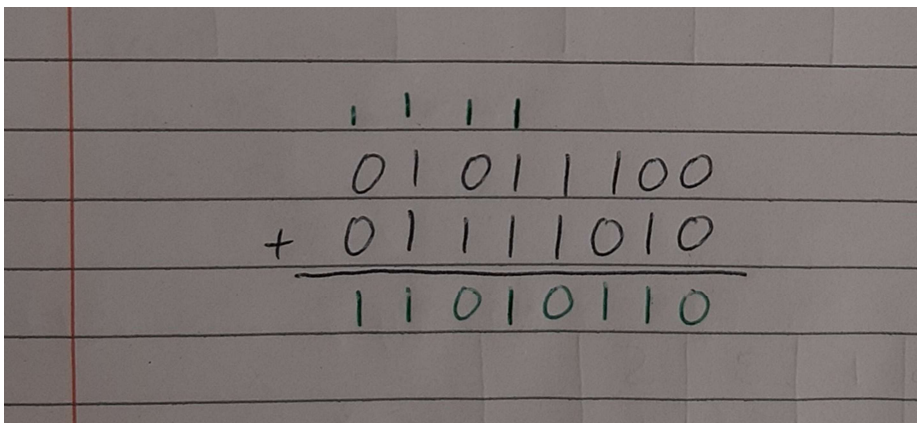 1 1 1 1
0 1 0 1 1 1 0 0
+ 0 1 1 1 1 0 1 0
1 1 0 1 0 1 1 0